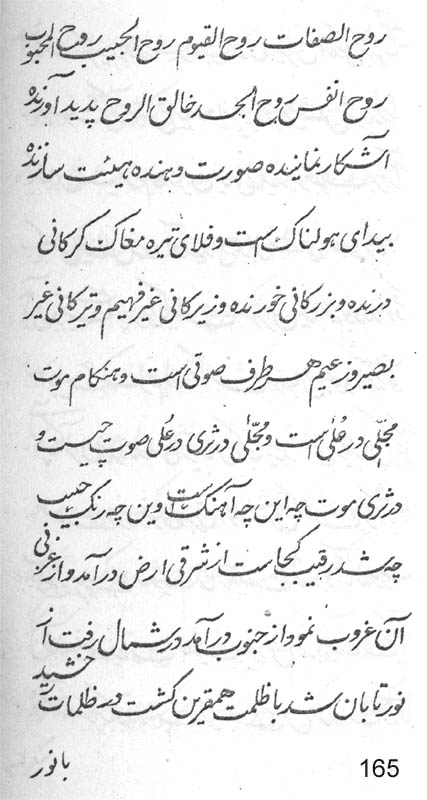 روح الصفات روح القیوم روح الحبیب روح المحبوب
روح انفس روح الجسد خالق الروح پدید آورنده
آشکار نماینده صورت دهنده هیئت سازنده
بیدای هولناک است و فلای تیره مغاک گرکانی
درنده و بزرکانی خورنده و زیرکانی غیر فهیم و تیرکانی غیر
بصیر و زعیم هر طرف صوتی است و هنکام موت
مجلّی در عُلیٰ است و مُجلّی در ثری در عُلی صوت چیست و
در ثری موت چه این چه آهنک است وین چه رنک حبیب
چه شد رقیب کجاست از شرقی ارض در آمد و از غربی
آن غروب نمود از جنوب در آمد در شمال رفت از
نور تابان شد با ظلمت همقرین کشت در ظلمات رخشید
با نور
165